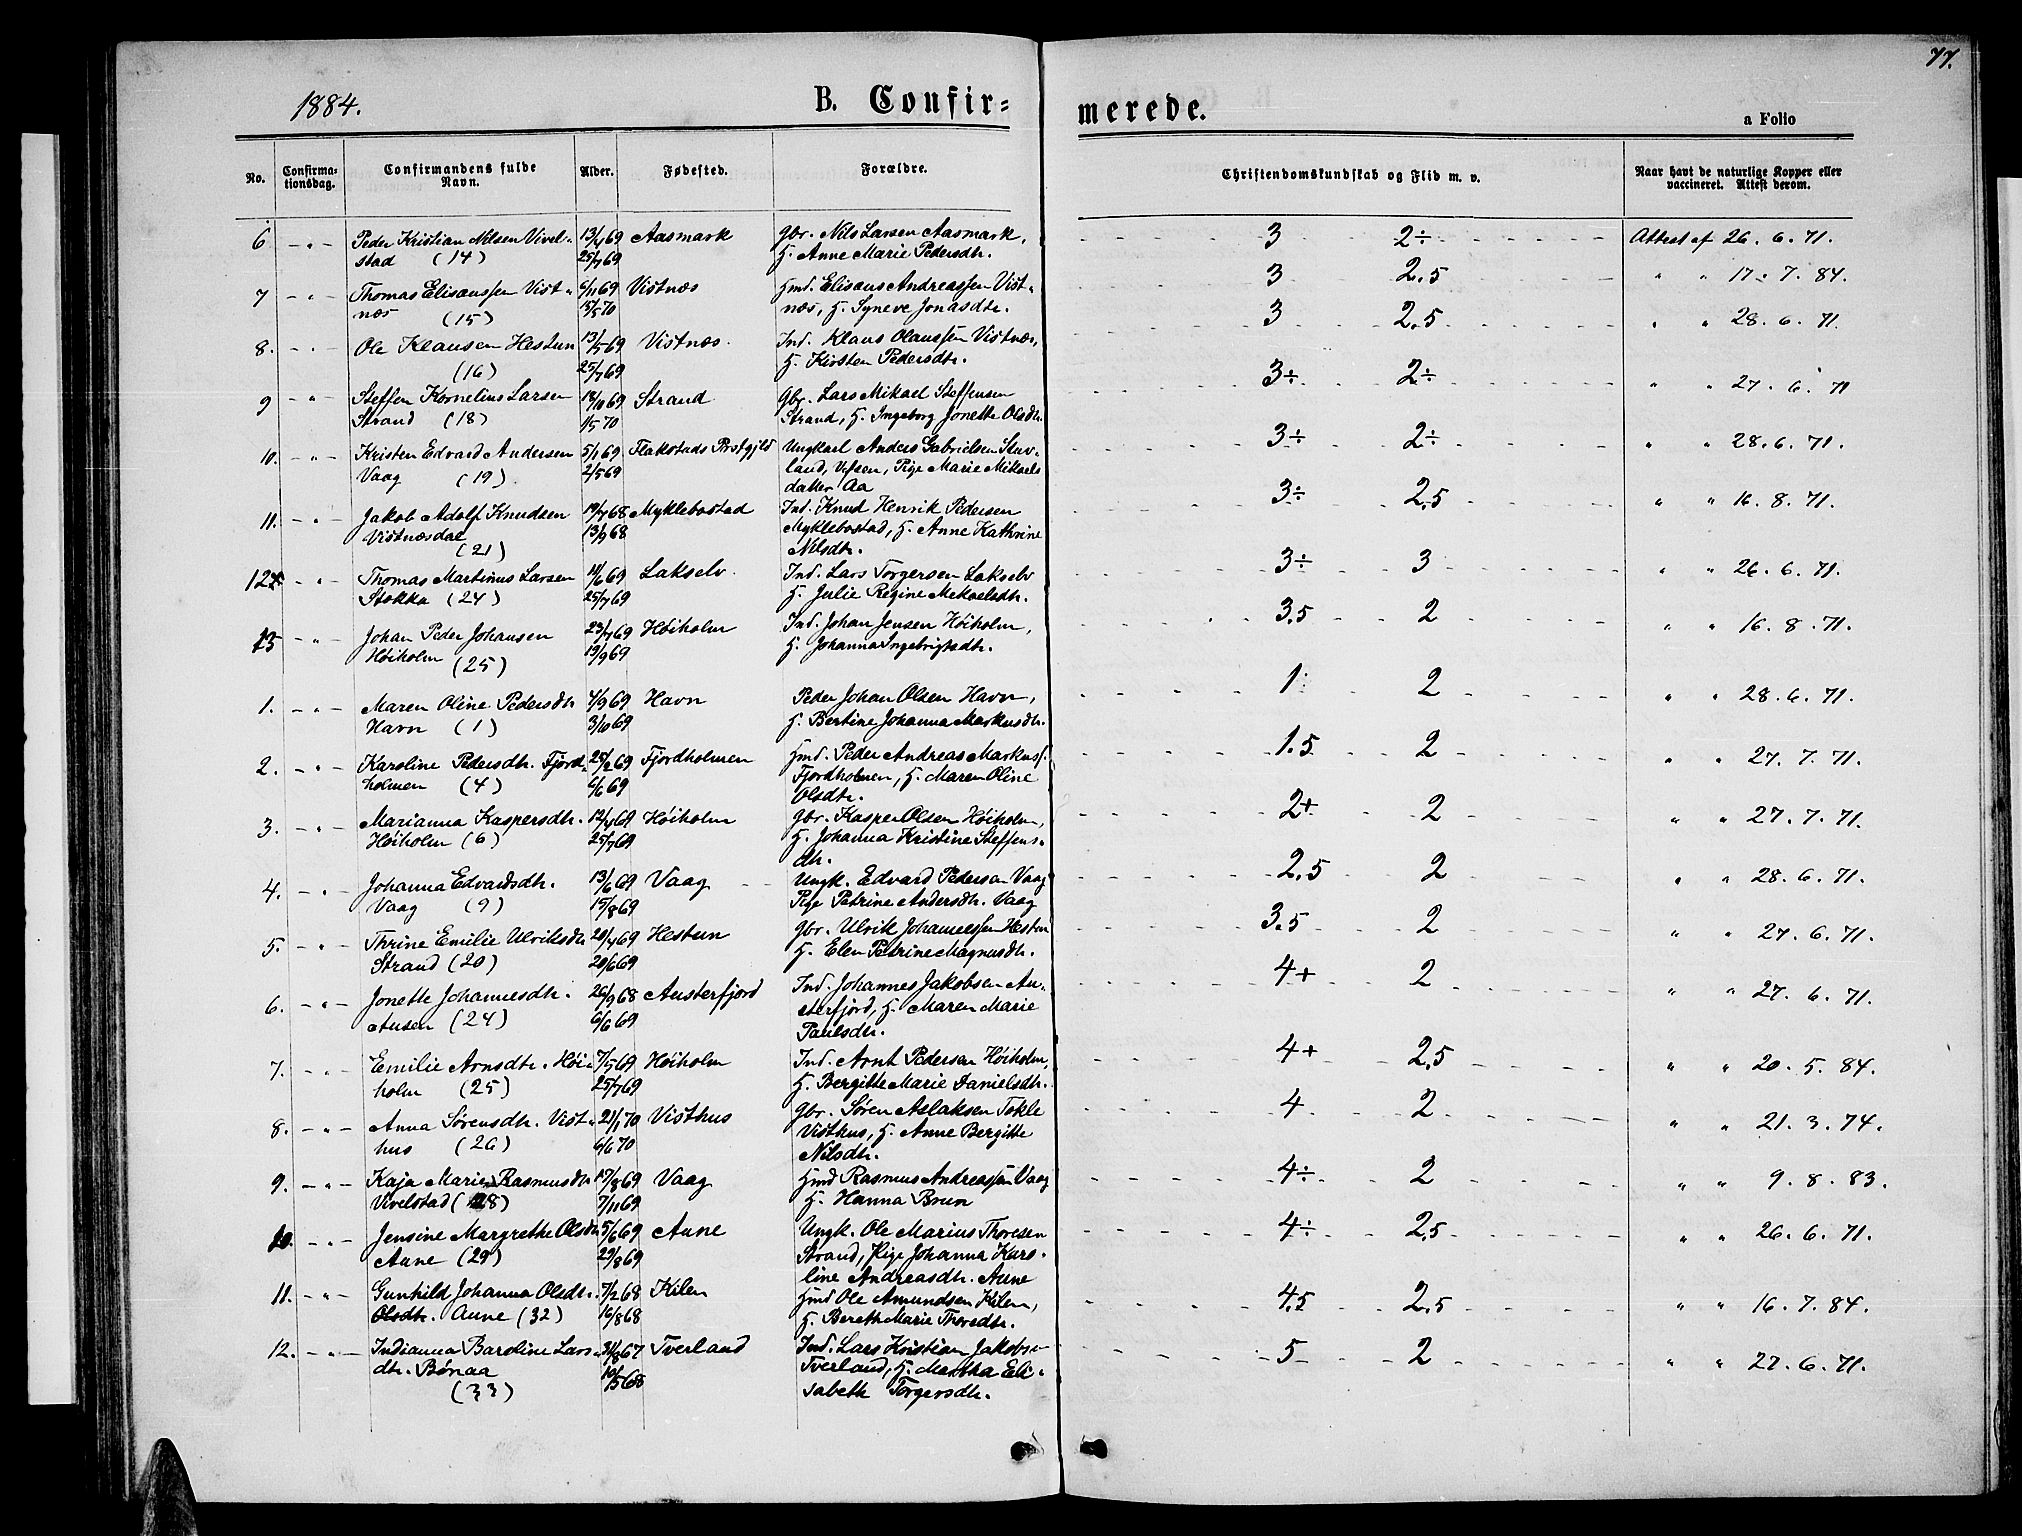 77.
1884. B. Confir= merede. a Folio
No. Confirma- tionsdag. Confirmandens fulde Navn. Alder. Fødested. Forældre. Christendomskundskab og Flid m. v. Naar havt de naturlige Kopper eller vaccineret. Attest derom.
6 - " - Peder Kristian Nilsen Vivel- 13/4 69 Aasmark Gbr. Nils Larsen Aasmark, 3 2÷ Attest af 26. 6. 71.
stad (14) 25/7 69 H. Anne Marie Pedersdtr.
7 - " - Thomas Elisaussen Vist- 6/11 69 Vistnæs Hmd. Elisaus Andreassen Vist- 3 2,5 " " 17. 7. 84.
næs (15) 18/5 70 næs, H. Syneve Jonasdtr.
8. - " - Ole Klausen Hestun 13/5 69 Vistnæs. Ind. Klaus Olaussen Vistnæs, 3 2,5 " " 28. 6. 71.
(16) 25/7 69 H. Kirsten Pedersdtr.
9 - " - Steffen Kornelius Larsen 18/10 69 Strand Gbr. Lars Mikael Steffensen 3÷ 2÷ " " 27. 6. 71
Strand (18) 1/5 70 Strand, H. Ingeborg Jonette Olsdtr.
10. - " - Kristen Edvard Andersen 5/1 69 Flakstads Prstgjld Ungkarl Anders Gabrielsen Stuv- 3÷ 2÷ " " 28. 6. 71.
Vaag (19). 2/5 69 land, Vefsen, Pige Marie Mikaels
datter Aa
11. - " - Jakob Adolf Knudsen 19/7 68 Myklebostad Ind. Knud Henrik Pedersen 3÷ 2,5 " " 16. 8. 71.
Vistnæsdal (21) 13/9 68 Myklebostad, H. Anne Kathrine
Nilsdtr.
12 - " - Thomas Martinus Larsen 11/6 69 Lakselv. Ind. Lars Torgersen Lakselv 3÷ 3 " " 26. 6. 71.
Stokka (24) 25/7 69 H. Julie Regine Mekaelsdtr.
13 " Johan Peder Johansen 23/7 69 Høiholm Ind. Johan Jensen Høiholm, 3.5 2 " " 16. 8. 71.
Høiholm (25) 19/9 69 H. Johanna Ingebrigtsdtr.
1. - " - Maren Oline Pedersdtr 4/9 69 Havn Peder Johan Olsen Havn, 1 2 " " 28. 6. 71.
Havn (1) 3/10 69 H. Bertine Johanna Markusdtr.
2. - " - Karoline Pedersdtr. Fjord- 25/2 69 Fjordholmen Hmd. Peder Andreas Markuss. 1.5 2 " " 27. 7. 71.
holmen (4) 6/6 69 Fjordholmen, H. Maren Oline
Olsdtr.
3. - " - Marianna Kaspersdtr. 12/4 69 Høiholm Gbr. Kasper Olsen Høiholm, 2+ 2 " " 27. 7. 71.
Høiholm (6) 25/7 69 H. Johanna Kristine Steffens-
dtr.
4. - " - Johanna Edvardsdtr. 13/6 69 Vaag Ungk. Edvard Pedersen Vaag 2.5 2 " " 28. 6. 71.
Vaag (9) 15/8 69 Pige Petrine Andersdtr. Vaag
5. - " - Thrine Emilie Ulriksdtr 20/4 69 Hestun Gbr. Ulrik Johannessen Hestun 3.5 2 " " 27. 6. 71.
Strand (20) 20/6 69 H. Elen Petrine Magnusdtr.
6. - " - Jonette Johannesdtr. 26/9 68 Austerfjord Ind. Johannes Jakobsen Au- 4+ 2 " " 27. 6. 71.
Ausen (24) 6/6 69 sterfjord, H. Maren Marie
Paulsdtr.
7. - " - Emilie Arnsdtr. Høi- 7/5 69 Høiholm Ind. Arnt Pedersen Høiholm, 4+ 2,5 " " 20. 5. 84.
holm (25) 25/7 69 H. Bergitte Marie Danielsdtr.
8. - " - Anna Sørensdtr. Vist- 21/1 70 Visthus Gbr. Søren Aslaksen Tokle 4 2 " " 21. 3. 74.
hus (26) 6/6 70 Visthus, H. Anne Bergitte
Nilsdtr.
9. - " - Kaja Marie Rasmusdtr 17/8 69 Vaag Hmd Rasmus Andreassen Vaag 4÷ 2 " " 9. 8. 83.
Vivelstad (28) 7/11 69 H. Hanna Brun
10. - " - Jensine Margrethe Olsdtr 5/6 69 Aune Ungk. Ole Marius Thoresen 4÷ 2,5 " " 26. 6. 71.
Aune (29) 29/8 69 Strand, Pige Johanna Karo-
line Andreasdtr. Aune
11. - " - Gunhild Johanna Olsdtr. 7/2 68 Kilen Hmd Ole Amundsen Kilen, 4,5 2,5 " " 16. 7. 84.
Olsdtr. Aune (32) 16/8 68 H. Bereth Marie Thoredtr.
12. - " - Indianna Baroline Lars- 31/8 67 Tverland Ind. Lars Kristian Jakobsen 5 2 " " 27. 6. 71.
dtr. Bønaa 10/5 68 Tverland, H. Martha Eli-
(33) sabeth Torgersdtr.